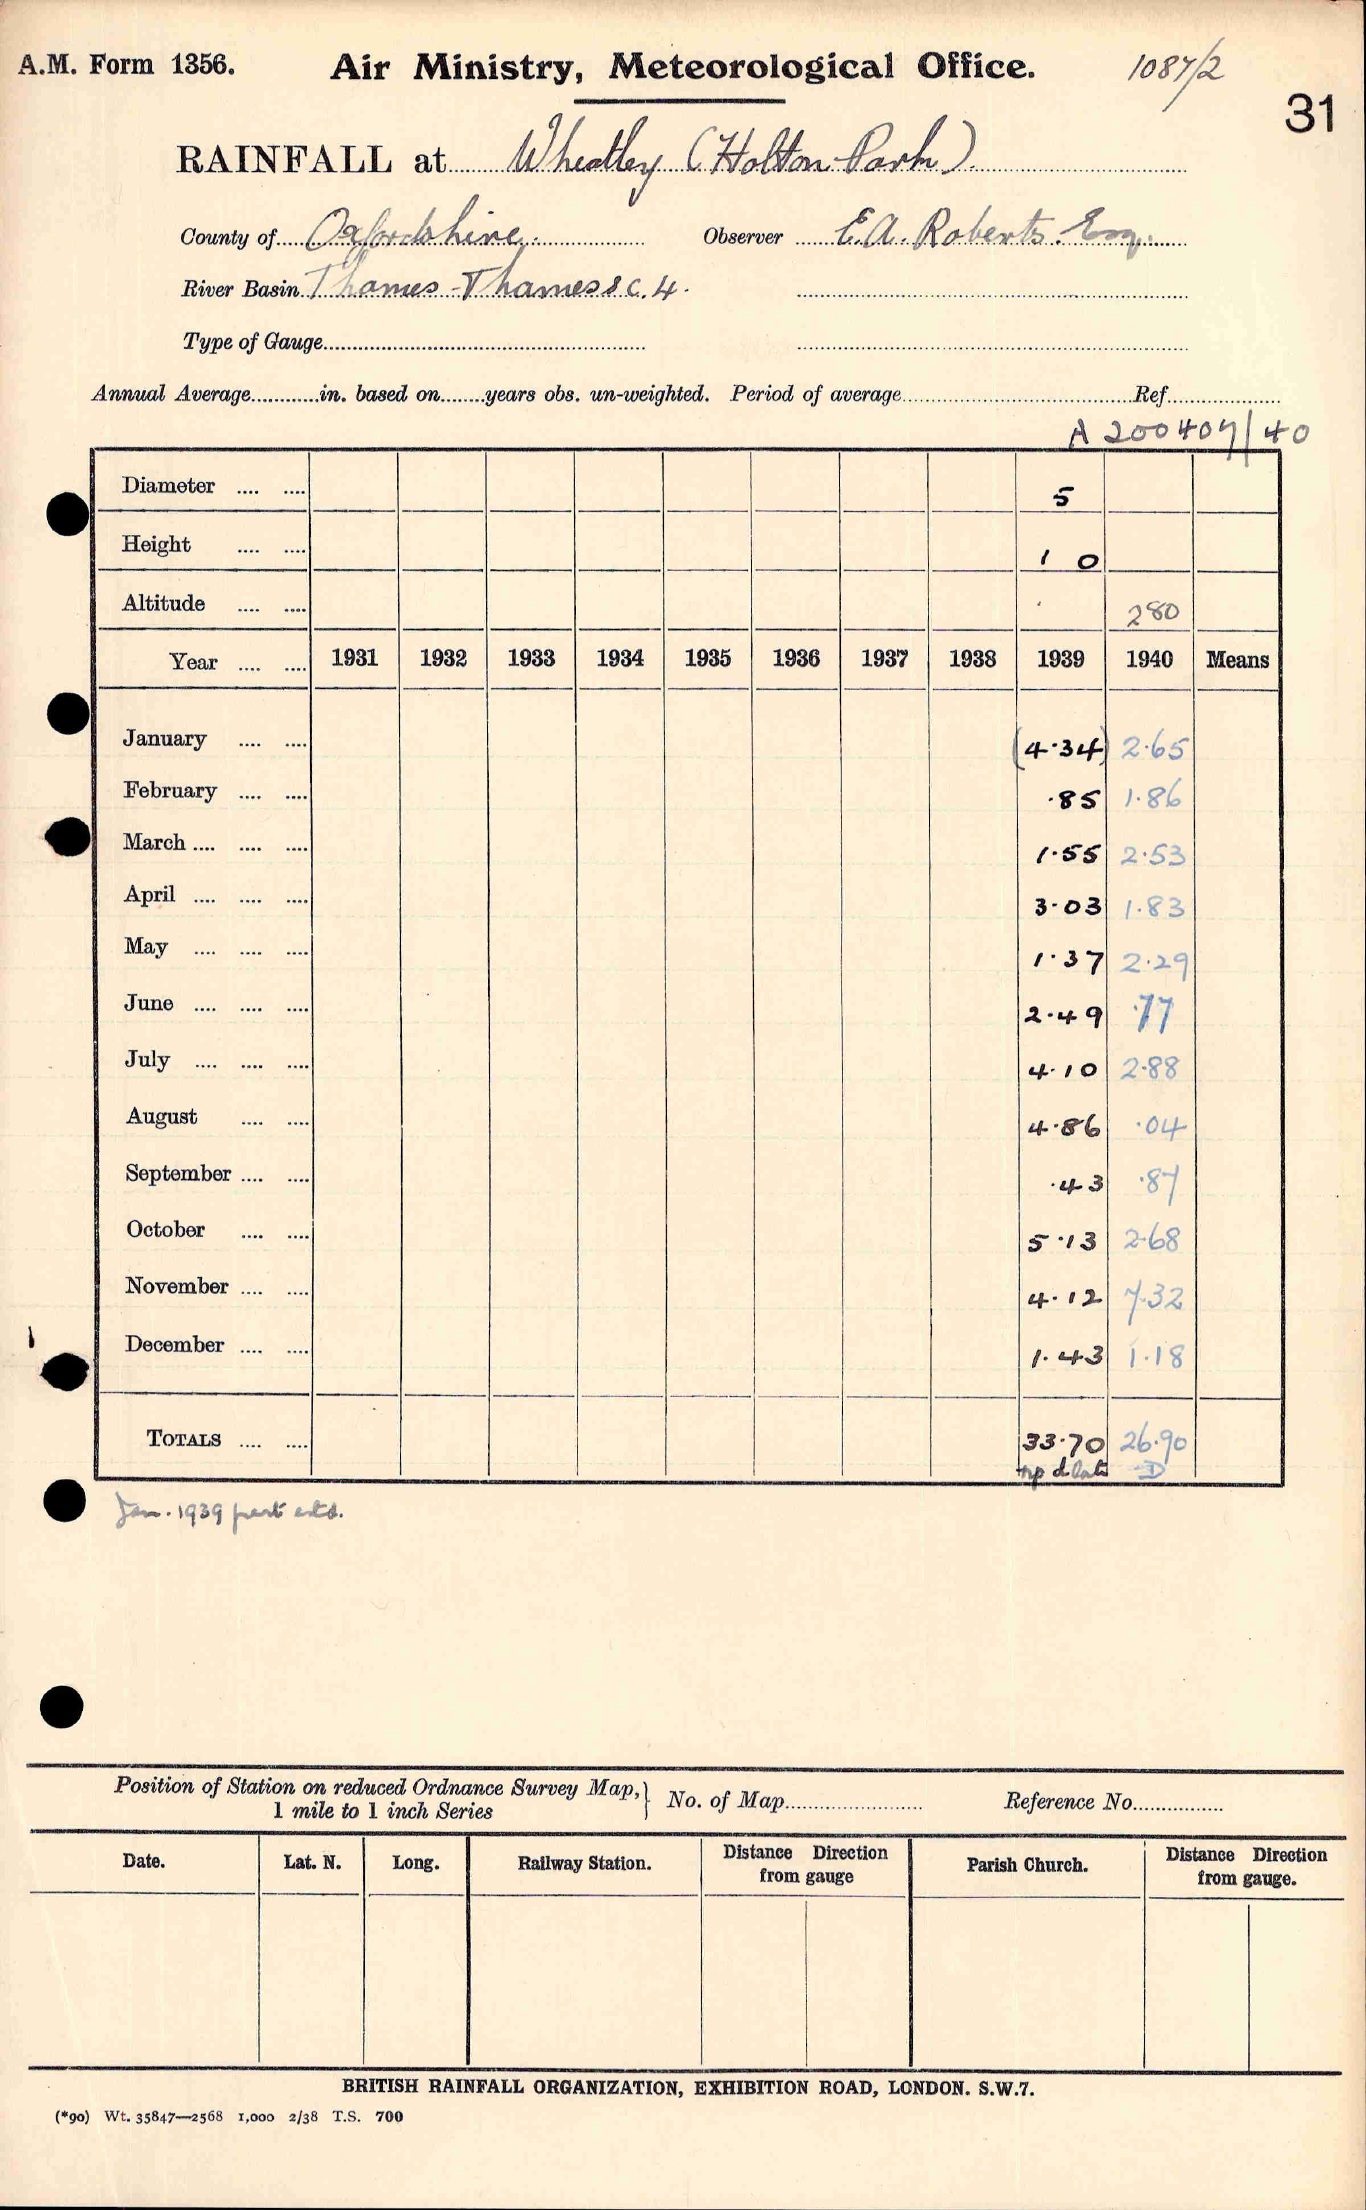 A.M. Form 1356. Air Ministry, Meteorological Office. 1087/2
31
RAINFALL at Wheatley (Holton Park)
County of Oxfordshire. Observer E.A. Roberts. Esq.
River Basin Thames - Thames & C. 4.
Type of Gauge
Annual Average in. based on years obs. un-weighted. Period of average Ref
A 200407/40
Diameter .... .... 5
Height .... .... 1 0
Altitude .... .... 280
Year .... .... 1931 1932 1933 1934 1935 1936 1937 1938 1939 1940 Means
January .... .... (4.34) 2.65
February .... .... .85 1.86
March .... .... .... 1.55 2.53
April .... .... .... 3.03 1.83
May .... .... .... 1.37 2.29
June .... .... .... 2.49 .77
July .... .... .... 4.10 2.88
August .... .... 4.86 .04
September .... .... .43 .87
October .... .... 5.13 2.68
November .... .... 4.12 7.32
December .... .... 1.43 1.18
TOTALS .... .... 33.70 26.90
D
Jan. 1939 part estd.
Position of Station on reduced Ordnance Survey Map, } No. of Map Reference No.
1 mile to 1 inch Series
Date. Lat. N. Long. Railway Station. Distance Direction from gauge Parish Church. Distance Direction from gauge.
BRITISH RAINFALL ORGANIZATION, EXHIBITION ROAD, LONDON. S.W.7.
(*90) Wt. 35847—2568 1,000 2/38 T.S. 700